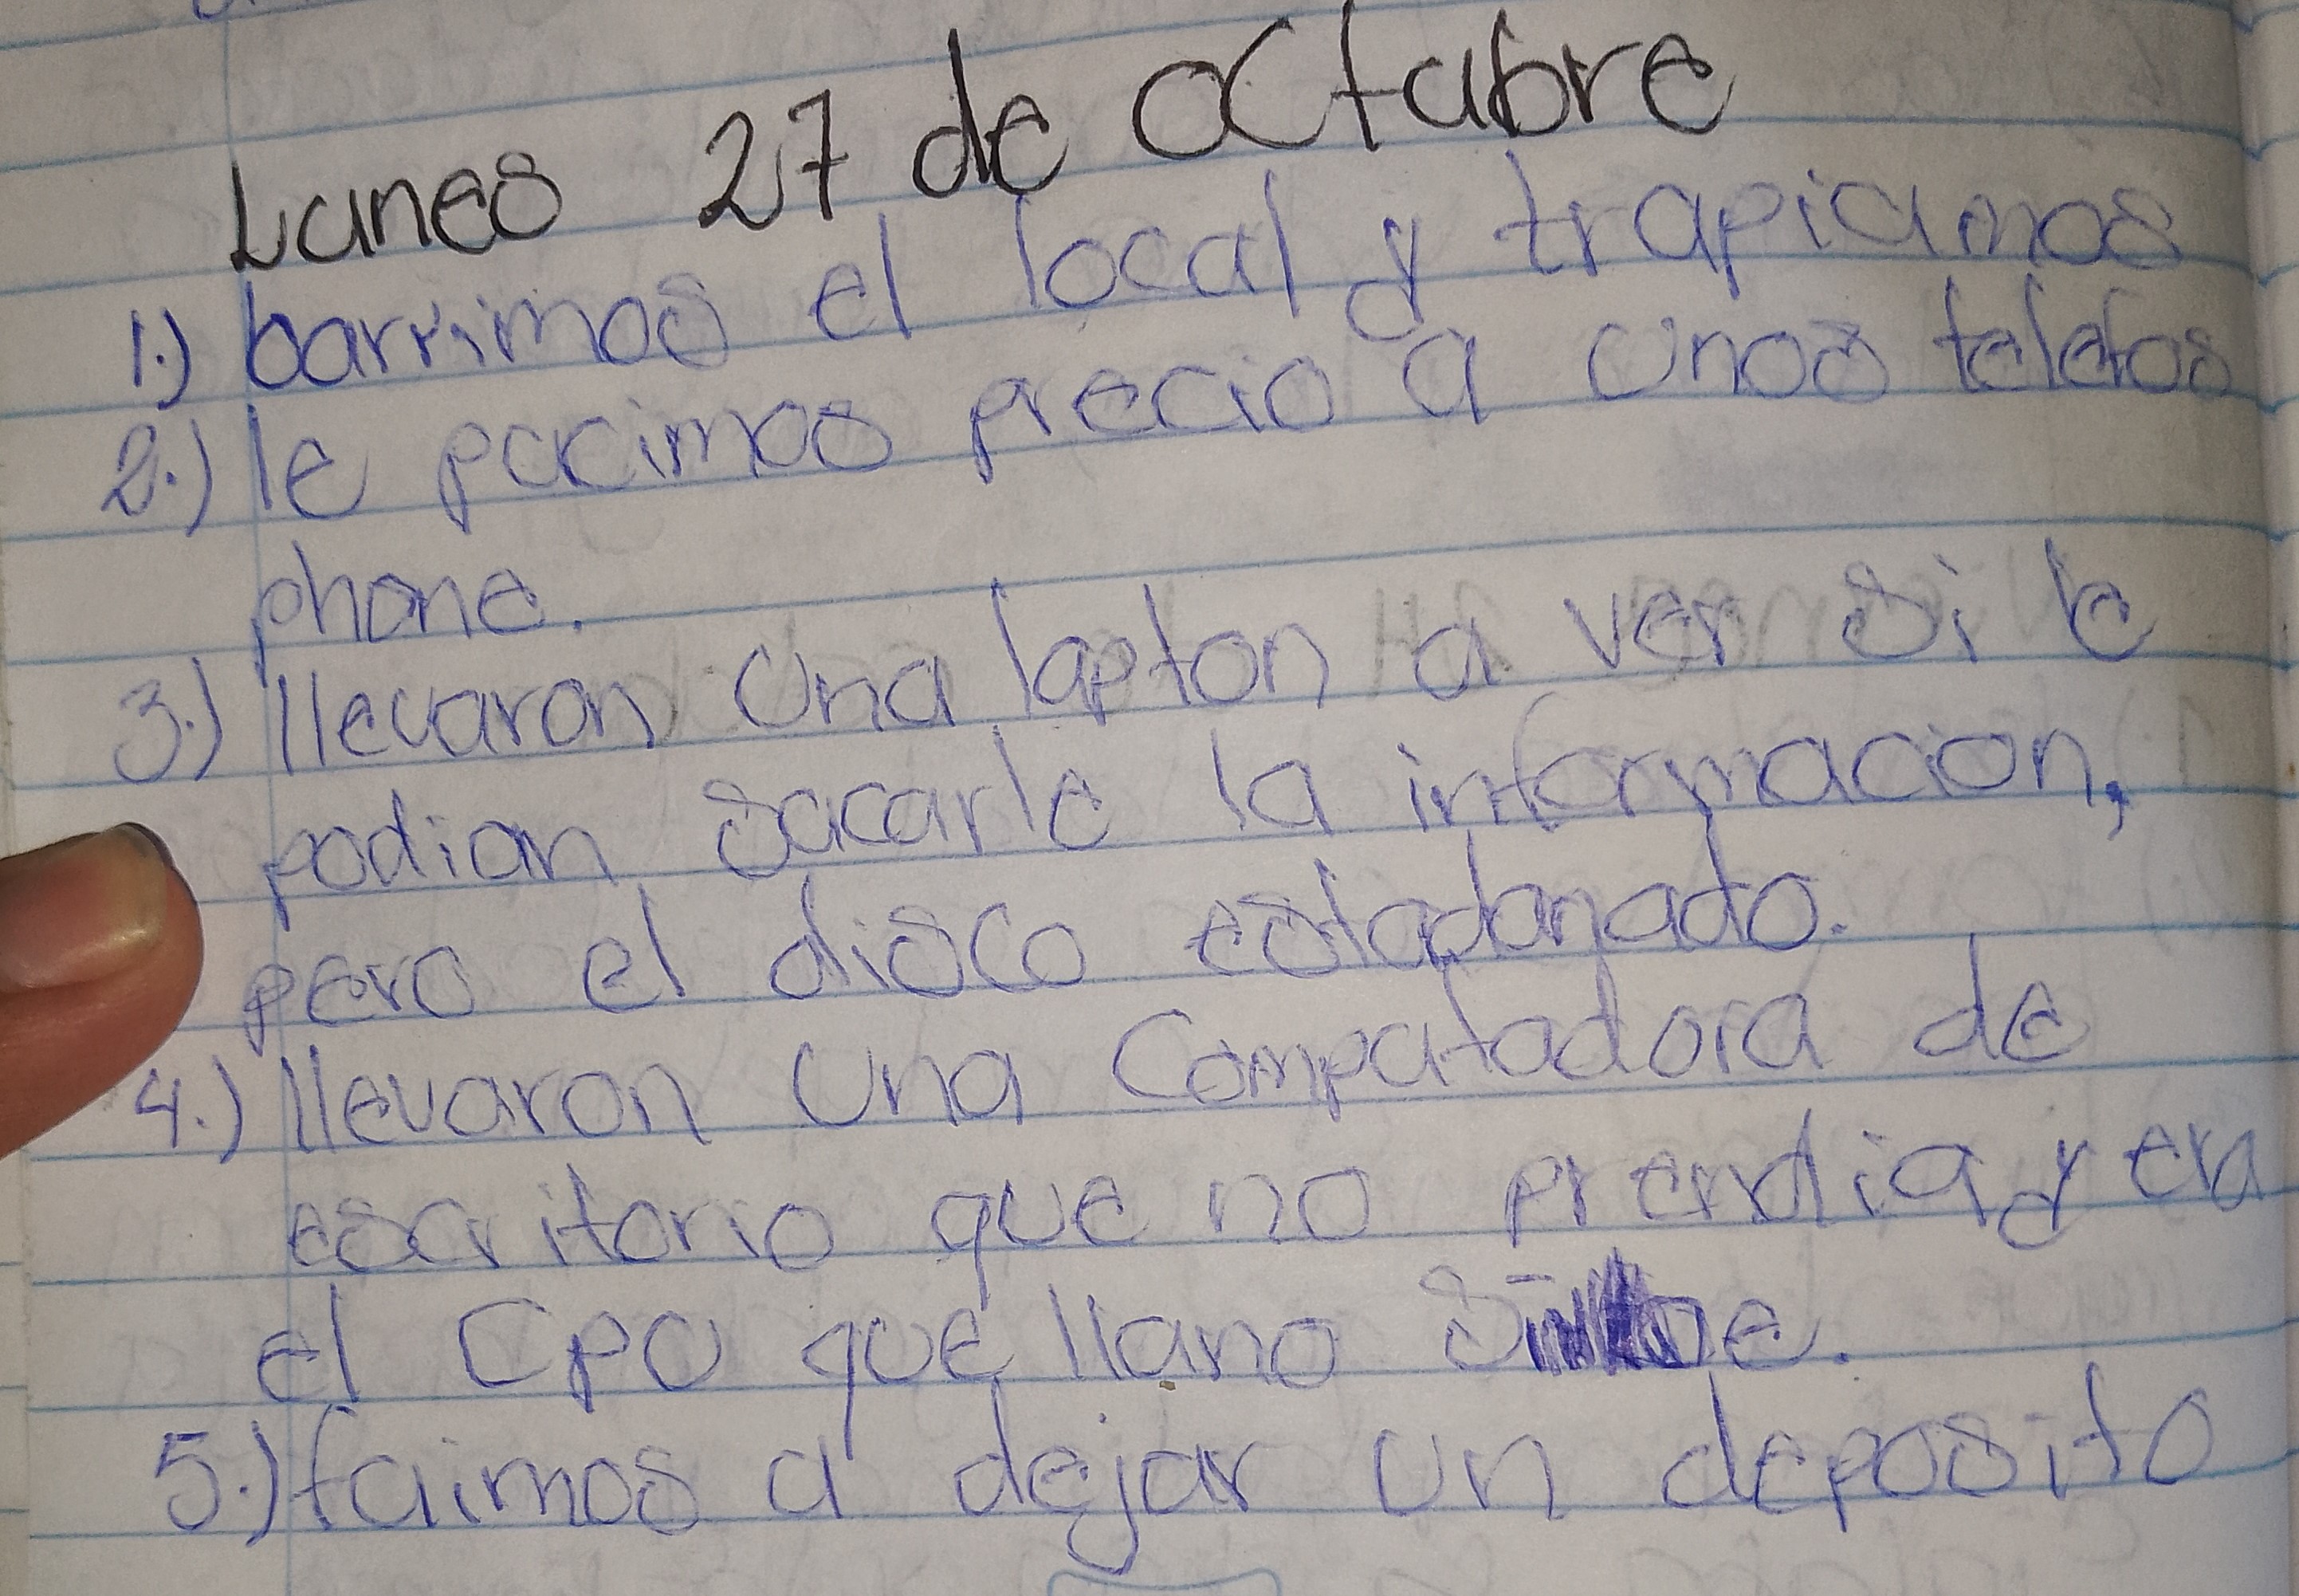 Lunes 27 de octubre
1.) barrimos el local y trapiamos
2.) le pucimos precio a unos telefos
phone.
3.) llevaron una lapton a ver si le
podian sacarle la informacion,
pero el disco estadanado.
4.) llevaron una Computadora de
escritorio que no prendia y era
el CPU que llano
5.) fuimos a dejar un deposito